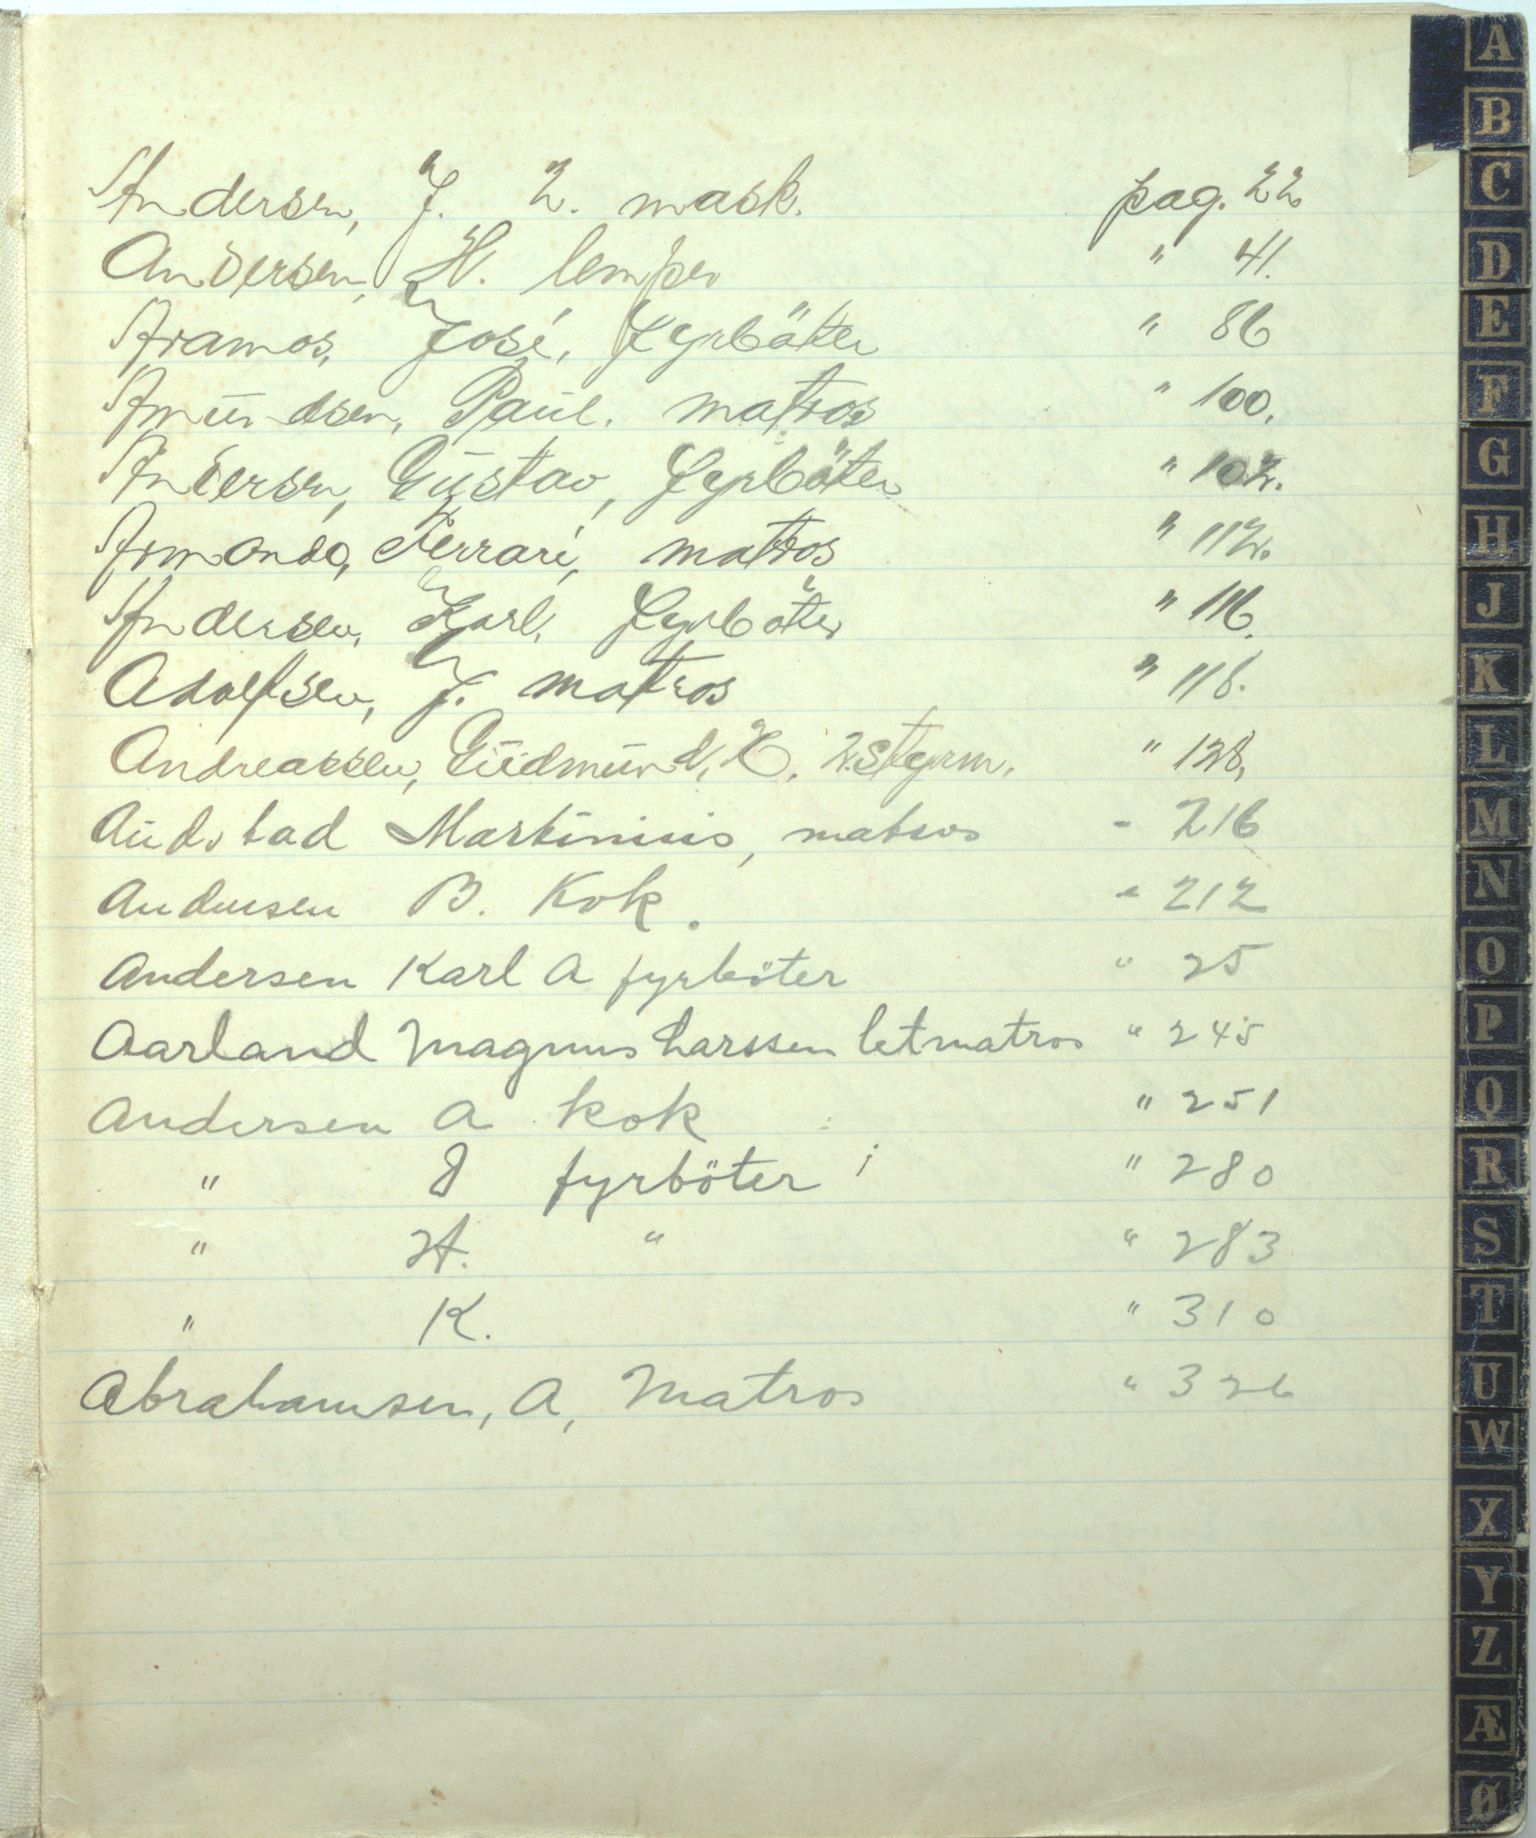 Andersen, J. 2. mask. pag. 22
Andersen, H. lemper " 41.
Aramos, José, Fyrböter " 86
Amundsen, Paul. matros " 100.
Andersen, Gustav, Fyrböter " 102.
Armando, Ferrari, matros " 112.
Andersen, Karl, Fyrböter " 116.
Adolfsen, J. matros " 118.
Andreassen, Gudmund, E. 2. styrm. " 128.
Audstad Martinius, matros " 216
Andersen B. Kok. " 212
Andersen Karl A fyrböter " 25
Aarland Magnus Larssen letmatros " 245
Andersen A kok " 251
" J fyrböter " 280
" H. " " 283
" K. " 310
Abrahamsen, A, Matros " 326
A
B
C
D
E
F
G
H
J
K
L
M
N
O
P
Q
R
S
T
U
W
X
Y
Z
Æ
Ø